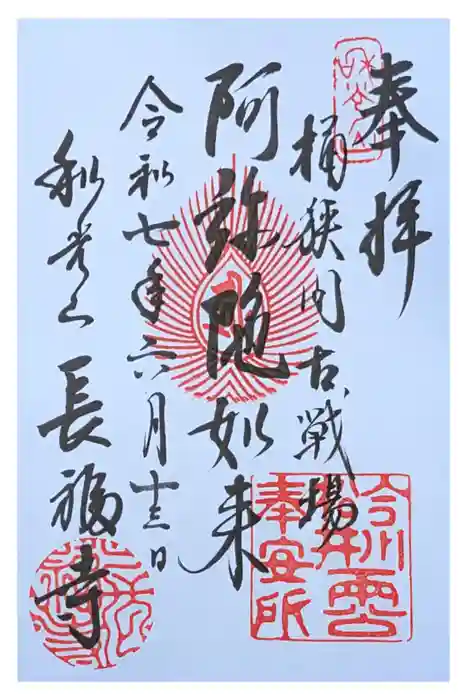 奉拝
桶狭間古戦場
阿弥陀如来
令和七年六月十三日
和光山
長福寺
今川義元
奉安所